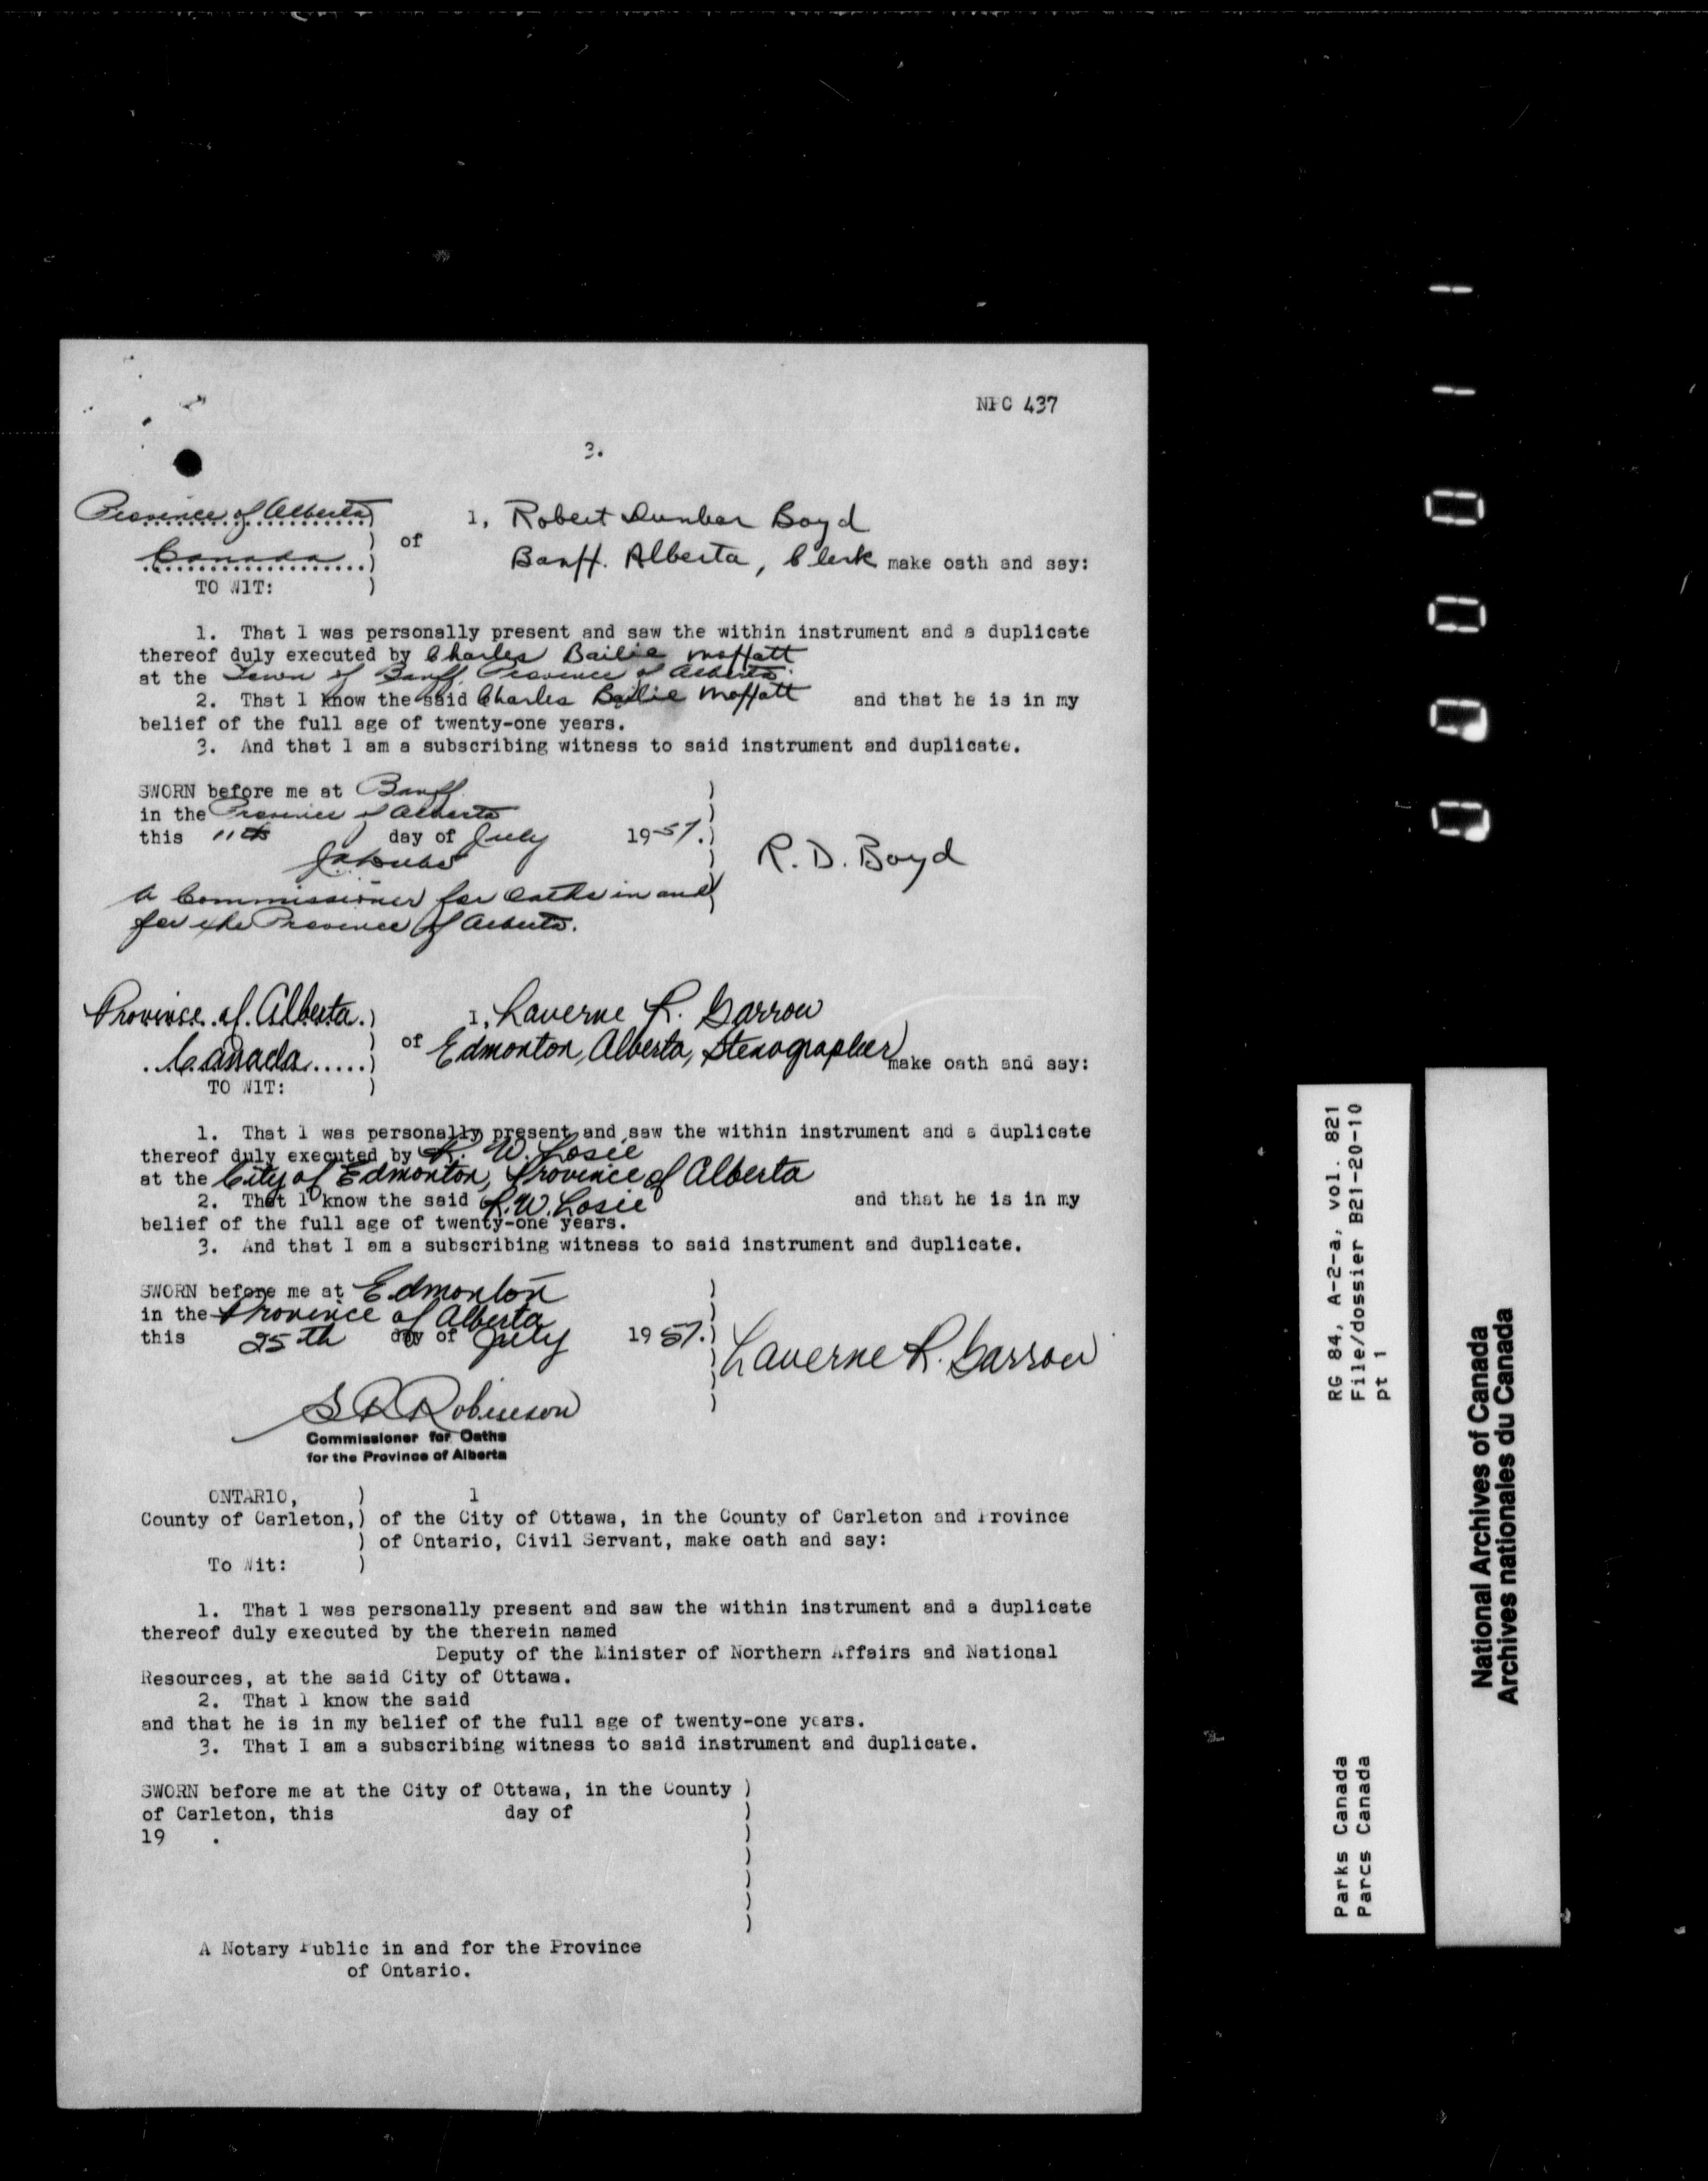 NPC 437
3.
Province of Alberta )
Canada )
TO WIT: )
of
I, Robert Dunbar Boyd
Banff. Alberta, Clerk make oath and say:
1. That I was personally present and saw the within instrument and a duplicate
thereof duly executed by Charles Bailie Moffatt
at the Town of Banff. Province of Alberta.
2. That I know the said Charles Bailie Moffatt and that he is in my
belief of the full age of twenty-one years.
3. And that I am a subscribing witness to said instrument and duplicate.
SWORN before me at Banff
in the Province of Alberta
this 11th day of July 1957.
R. D. Boyd
A Commissioner for Oaths in and
for the Province of Alberta.
Province of Alberta. )
Canada )
TO WIT: )
I, Laverne R. Garrow
of Edmonton, Alberta, Stenographer make oath and say:
1. That I was personally present and saw the within instrument and a duplicate
thereof duly executed by R. W. Losie
at the City of Edmonton, Province of Alberta
2. That I know the said R. W. Losie and that he is in my
belief of the full age of twenty-one years.
3. And that I am a subscribing witness to said instrument and duplicate.
SWORN before me at Edmonton
in the Province of Alberta
this 25th day of July 1957.
Laverne R. Garrow
S R Robinson
Commissioner for Oaths
for the Province of Alberta
ONTARIO, ) I
County of Carleton, ) of the City of Ottawa, in the County of Carleton and Province
) of Ontario, Civil Servant, make oath and say:
To Wit: )
1. That I was personally present and saw the within instrument and a duplicate
thereof duly executed by the therein named
Deputy of the Minister of Northern Affairs and National
Resources, at the said City of Ottawa.
2. That I know the said
and that he is in my belief of the full age of twenty-one years.
3. That I am a subscribing witness to said instrument and duplicate.
SWORN before me at the City of Ottawa, in the County )
of Carleton, this day of )
19 . )
A Notary Public in and for the Province
of Ontario.
RG 84, A-2-a, vol. 821
File/dossier B21-20-10
pt 1
Parks Canada
Parcs Canada
National Archives of Canada
Archives nationales du Canada